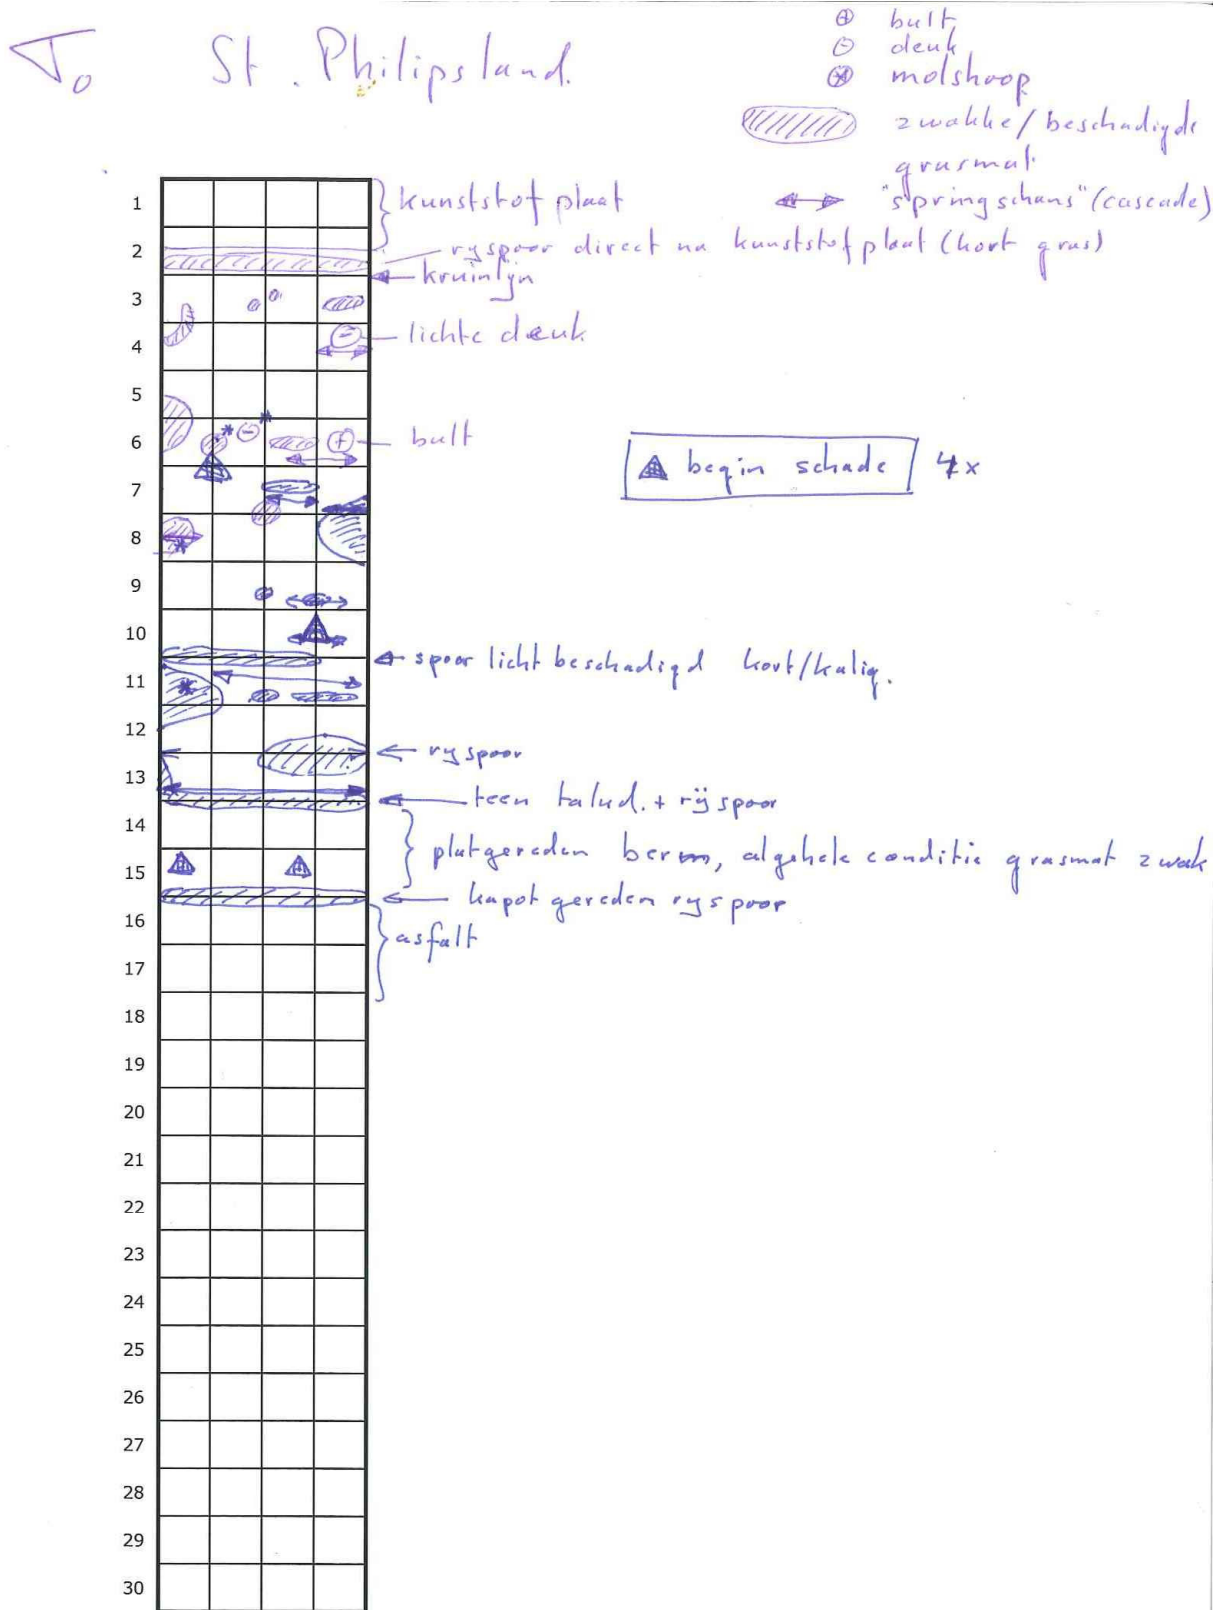 T₀ St. Philipsland.
⊕ bult
⊖ deuk
⊛ molshoop
zwakke/beschadigde
grasmat
"springschans" (cascade)
1 kunststof plaat
2 ryspoor direct na kunststof plaat (kort gras)
kruinlijn
3
4 lichte deuk
5
6 bult
begin schade 4x
7
8
9
10
spoor licht beschadigd kort/kalig.
11
12
ryspoor
13
teen talud. + rijspoor
14
platgereden berm, algehele conditie grasmat zwak
15
kapot gereden ryspoor
16
asfalt
17
18
19
20
21
22
23
24
25
26
27
28
29
30